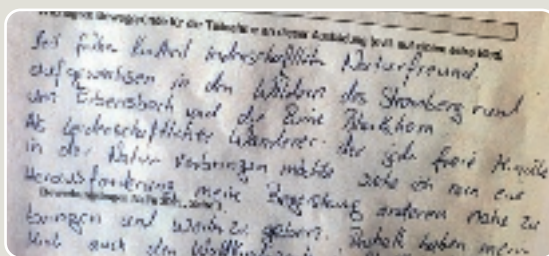 für die Teilnahme an dieser Ausbildung
Seit früher Kindheit leidenschaftlicher Naturfreund.
aufgewachsen in den Wäldern des Stromberg rund
um Eibensbach und die Ruine Blankenhorn
Als leidenschaftlicher Wanderer. der jede freie Minute
in der Natur verbringen möchte sehe ich nun eine
Herausforderung meine Begeisterung anderen nahe zu
bringen und weiter zu geben. Deshalb haben mein
auch den